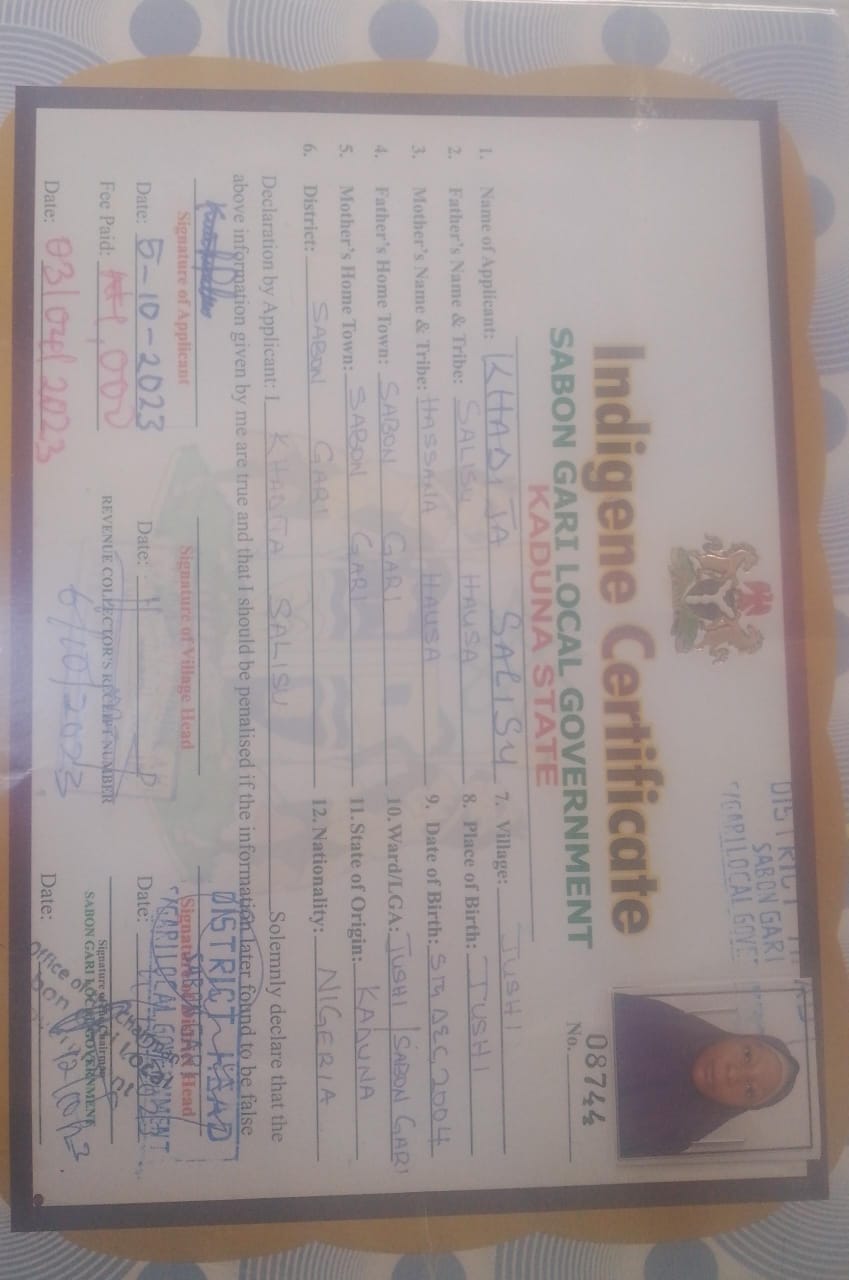 DISTRICT
SABON GARI
Indigene Certificate
SABON GARI LOCAL GOVERNMENT
KADUNA STATE
No. 08744
1. Name of Applicant: KHADIJA SALISU
2. Father's Name & Tribe: SALISU HAUSA
3. Mother's Name & Tribe: HASSANA HAUSA
4. Father's Home Town: SABON GARI
5. Mother's Home Town: SABON GARI
6. District: SABON GARI
7. Village: JUSHI
8. Place of Birth: JUSHI
9. Date of Birth: 5TH DEC, 2004
10. Ward/LGA: JUSHI / SABON GARI
11. State of Origin: KADUNA
12. Nationality: NIGERIA
Declaration by Applicant: I KHADIJA SALISU Solemnly declare that the
above information given by me are true and that I should be penalised if the information later found to be false
Signature of Applicant
Date: 5-10-2023
Signature of Village Head
Date:
DISTRICT HEAD
SABON GARI
Signature of District Head
Date:
Fee Paid: ₦1,000
Date: 03/04/2023
REVENUE COLLECTOR'S RECEIPT NUMBER
6/10/2023
Signature of the Chairman
SABON GARI LOCAL GOVERNMENT
Date:
Office of